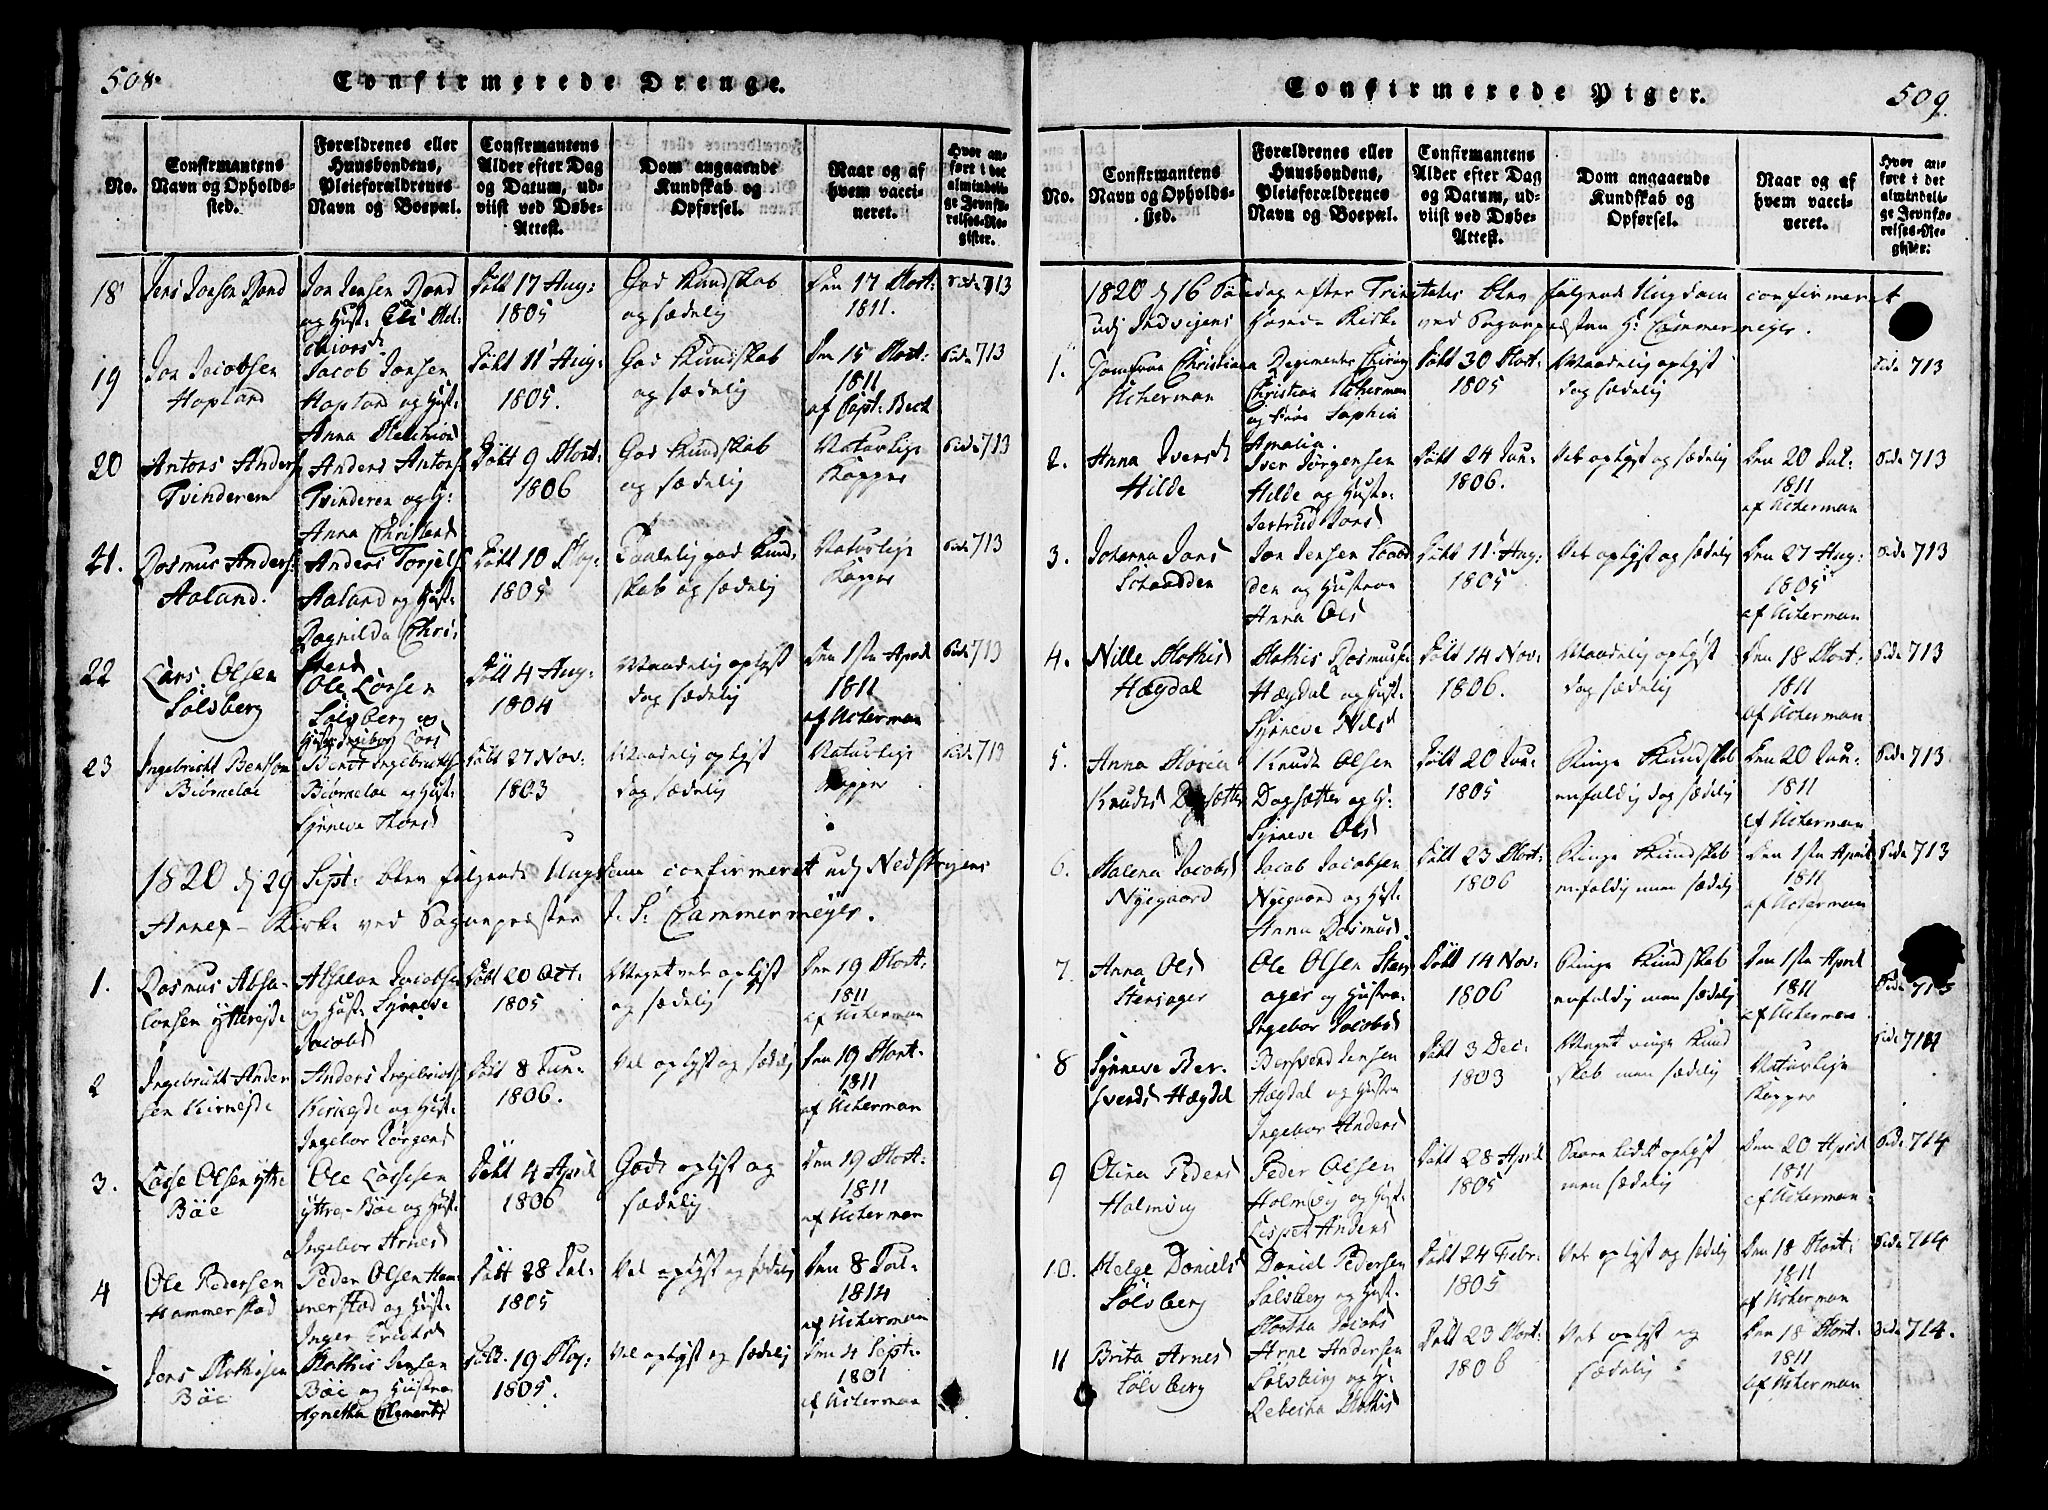 508.
Confirmerede Drenge.
No.
Confirmantens
Navn og Opholds-
sted.
Forældrenes eller
Huusbondens,
Pleieforældrenes
Navn og Boepæl.
Confirmantens
Alder efter Dag
og Datum, ud-
viist ved Døbe-
Attest.
Dom angaaende
Kundskab og
Opførsel.
Naar og af
hvem vacci-
neret.
Hvor an-
ført i det
almindeli-
ge Jevnfø-
relses-Re-
gister.
18
Jens Jonsen
Jon Jensen
og Hust: Eli
Døbt 17 Aug:
1805
God Kundskab
og sædelig
Den 17 Mort:
1811.
Side 713
19
Jon Jacobsen
Hopland
Jacob Jonsen
Hopland og Hust:
Anna
Døbt 11 Aug:
1805.
God Kundskab
og sædelig
Den 15 Mort:
1811
af Capt: Beck
Side 713
20
Antons Anders
Tvinderem
Anders Antons
Tvinderen og H:
Anna Christens
Døbt 9 Mort:
1806
God Kundskab
og sædelig
Naturlige
Kopper
Side 713
21.
Rasmus Anders:
Aaland.
Anders Torjels
Aaland og Hust:
Ragnilda Chri-
stens
Døbt 10 May:
1805
Taalelig god Kund-
skab og sædelig
Naturlige
Kopper
Side 713
22
Lars Olsen
Solsberg
Ole Larsen
Solsberg og
Hustr Ingebor Lars
Døbt 4 Aug:
1804
Maadelig oplyst
dog sædelig
Den 1ste April
1811
af Ackerman
Side 713
23
Ingebricht Bentsen
Biørneloe
Bent Ingebrichts
Biørneloe og Hust:
Synneve Thors
Døbt 27 Nov:
1803
Maadelig oplyst
dog sædelig
Naturlige
Kopper
Side 713
1820 dj 29 Sept: blev følgende Ungdom confirmeret udj Nedstrygens
Annex-Kirke ved Sognepræsten J. S. Cammermeyer.
1.
Rasmus Absa-
lonsen Yttreejde
Absalon Jacobsen
og Hust: Synneve
Jacobs
Døbt 20 Oct:
1805
Meget vel oplyst
og sædelig
Den 19 Mort:
1811
af Ackerman
2
Ingebricht Ander
sen Kirkeejde
Anders Ingebrichts
Kirkeejde og Hust:
Ingebor Jørgens
Døbt 8 Jun:
1806.
Vel oplyst og sædelig
Den 19 Mort:
1811
af Ackerman
3.
Lasse Olsen ytre
Bøe
Ole Lassesen
yttre-Bøe og Hust:
Ingebor Arnes
Døbt 4 April
1806
Godt oplyst og
sædelig
Den 19 Mort:
1811
af Ackerman
4
Ole Pedersen
Hammerstad
Peder Olsen Ham-
merstad og Hust:
Inger Erichs
Døbt 28 Jul:
1805
Vel oplyst og sædelig
Den 8 Jul:
1814
af Ackerman
Jens Mathisen
Bøe
Mathis Jensen
Bøe og Hustroe
Agnetha Clements
Døbt 19 May:
1805.
Vel oplyst og sædelig
Den 4 Sept:
1801
af Ackerman
Confirmerede Piger.
509.
No.
Confirmantens
Navn og Opholds-
sted.
Forældrenes eller
Huusbondens,
Pleieforældrenes
Navn og Boepæl.
Confirmantens
Alder efter Dag
og Datum, ud-
viist ved Døbe-
Attest.
Dom angaaende
Kundskab og
Opførsel.
Naar og af
hvem vacci-
neret.
Hvor an-
ført i det
almindeli-
ge Jevnfø-
relses-Re-
gister:
1820 dj 16 Søndag efter Trinitatis blev følgende Ungdom confirmeret
udj Indvigens Hoved-Kirke ved Sognepræsten Hr Cammermeyer.
1.
Jomfrue Christiana
Ackerman
Regiments Chirurg
Christian Ackerman
og Frue Sophia
Amalia.
Døbt 30 Mort:
1805
Maadelig oplyst
dog sædelig
Side 713
2.
Anna Ivers
Hilde
Iver Jørgensen
Hilde og Hustr.
Jertrud Jons
Døbt 24 Jun:
1806.
Vel oplyst og sædelig
Den 20 Jul:
1811
af Ackerman
Side 713
3.
Johanna Jons
Scaadden
Jon Jensen Scaad-
den og Hustroe
Anna Ols
Døbt 11 Aug:
1805
Vel oplyst og sædelig
Den 27 Aug:
1805
af Ackerman
Side 713
4.
Nille Mathis
Hægdal
Mathis Rasmusse
Hægdal og Hust:
Synneve Nils
Døbt 14 Nov:
1806.
Maadelig oplyst
dog sædelig
Den 18 Mort:
1811
af Ackerman
Side 713
5.
Anna Maria
Knuds Dagsetter
Knud Olsen
Dagsetter og H:
Synneve Ols
Døbt 20 Jun:
1805
Ringe Kundskab
enfoldig dog sædelig
Den 20 Jun:
1811
af Ackerman
Side 713
6.
Malena Jacobs
Nyegaard
Jacob Jacobsen
Nyegaard og Hust:
Anna Rasmus
Døbt 23 Mort:
1806
Ringe Kundskab
enfoldig men sædelig
Den 1ste April
1811
af Ackerman
Side 713
7
Anna Ols
Stensager
Ole Olsen Sten-
sager og Hustroe
Ingebor Jacobs
Døbt 14 Nov:
1806
Ringe Kundskab
enfoldig men sædelig
Den 1ste April
1811
af Ackerman
Side 713
8
Synneve Ber-
svends Hægdal
Bersvend Jensen
Hægdal og Hustroe
Ingebor Anders
Døbt 3 Dec:
1803
Meget ringe Kund
skab men sædelig
Naturlige
Kopper
Side 714
9
Olina Peders
Holmvig
Peder Olsen
Holmvig og Hust:
Lispet Anders
Døbt 28 April
1805
Saare lidet oplyst
men sædelig
Den 20 April
1811
af Ackerman
Side 714
10.
Helge Daniels
Sølsberg
Daniel Pedersen
Sølsberg og Hust:
Martha Jacobs
Døbt 24 Febr:
1805
Vel oplyst og sædelig
Den 18 Mort:
1811
af Ackerman
Side 714
11
Brita Arnes
Sølsberg
Arne Andersen
Sølsberg og H:
Rebecka Mathis
Døbt 23 Mort:
1806
Vel oplyst og
sædelig
Den 18 Mort:
1811
af Ackerman
Side 714.